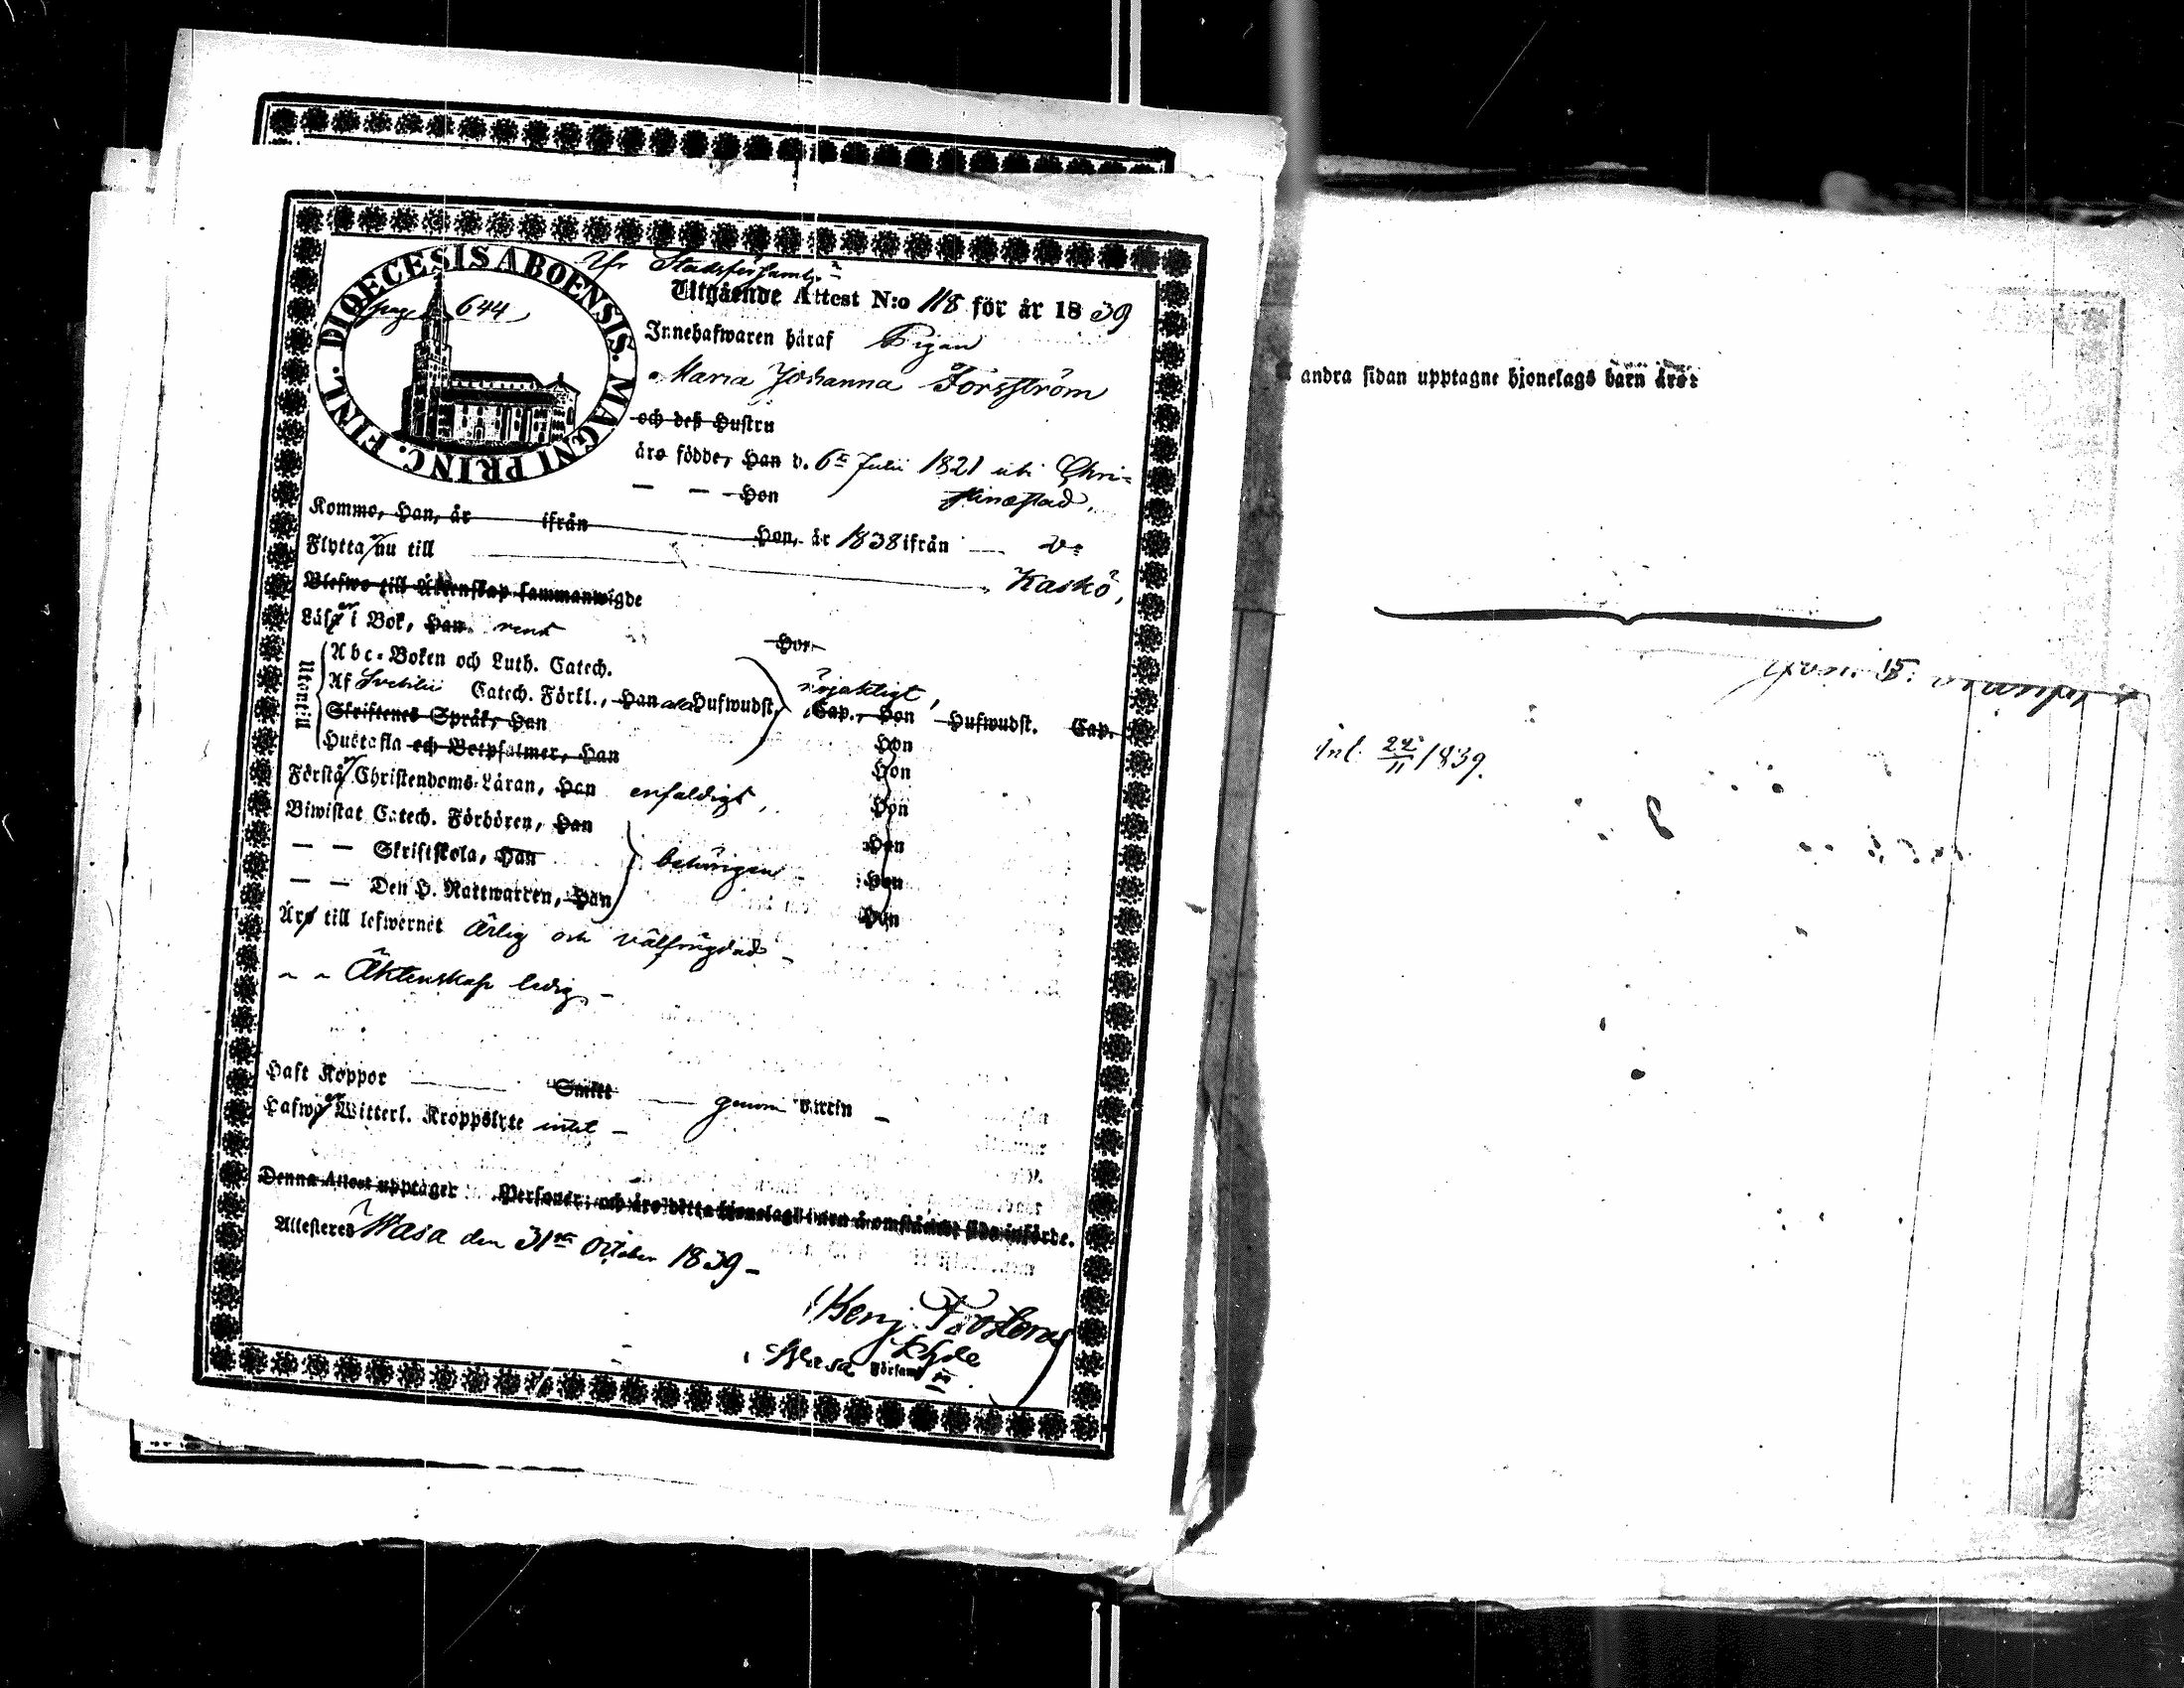 DIOECESIS ABOENSIS. MAGNI PRINC. FINL.
pag. 644
Ur Stadsförsaml:n
Utgående Attest N:o 118 för år 1839
Innehafwaren häraf Pigan
Maria Johanna Forsström
och deß Hustru
äro födde, Han d. 6te Julii 1821 uti Chri-
— — Hon stinæstad.
Kommo, Han, år ifrån Hon, år 1838 ifrån — do
Flytta nu till Kaskö,
Blefwo till Äktenskap sammanwigde
Läser i Bok, Han rent Hon
Utontill
Abc-Boken och Luth. Catech.
Af Svebilii Catech. Förkl., Han alla Hufwudst. Cap., Hon Hufwudst. Cap.
nöjaktigt,
Skriftenes Språk, Han Hon
Hustafla och Botpsalmer, Han Hon
Förstår Christendoms-Läran, Han enfaldigt, Hon
Biwistat Catech. Förhören, Han Hon
— — Skriftskola, Han behörigen Hon
— — Den H. Nattwarden, Han Hon
Är till lefwernet ärlig och välfrägdad
" " Äktenskap ledig
Haft Koppor Smitt genom vaccin
Hafwer Witterl. Kroppslyte intet
Denna Attest upptager Personer; och äro detta hjonelags barn å omstående sida införde.
Attesteres Wasa den 31sta October 1839
Benj. Frosterus
Wasa Församl
andra sidan upptagne hjonelags barn äro:
Inl. 22/11 1839.